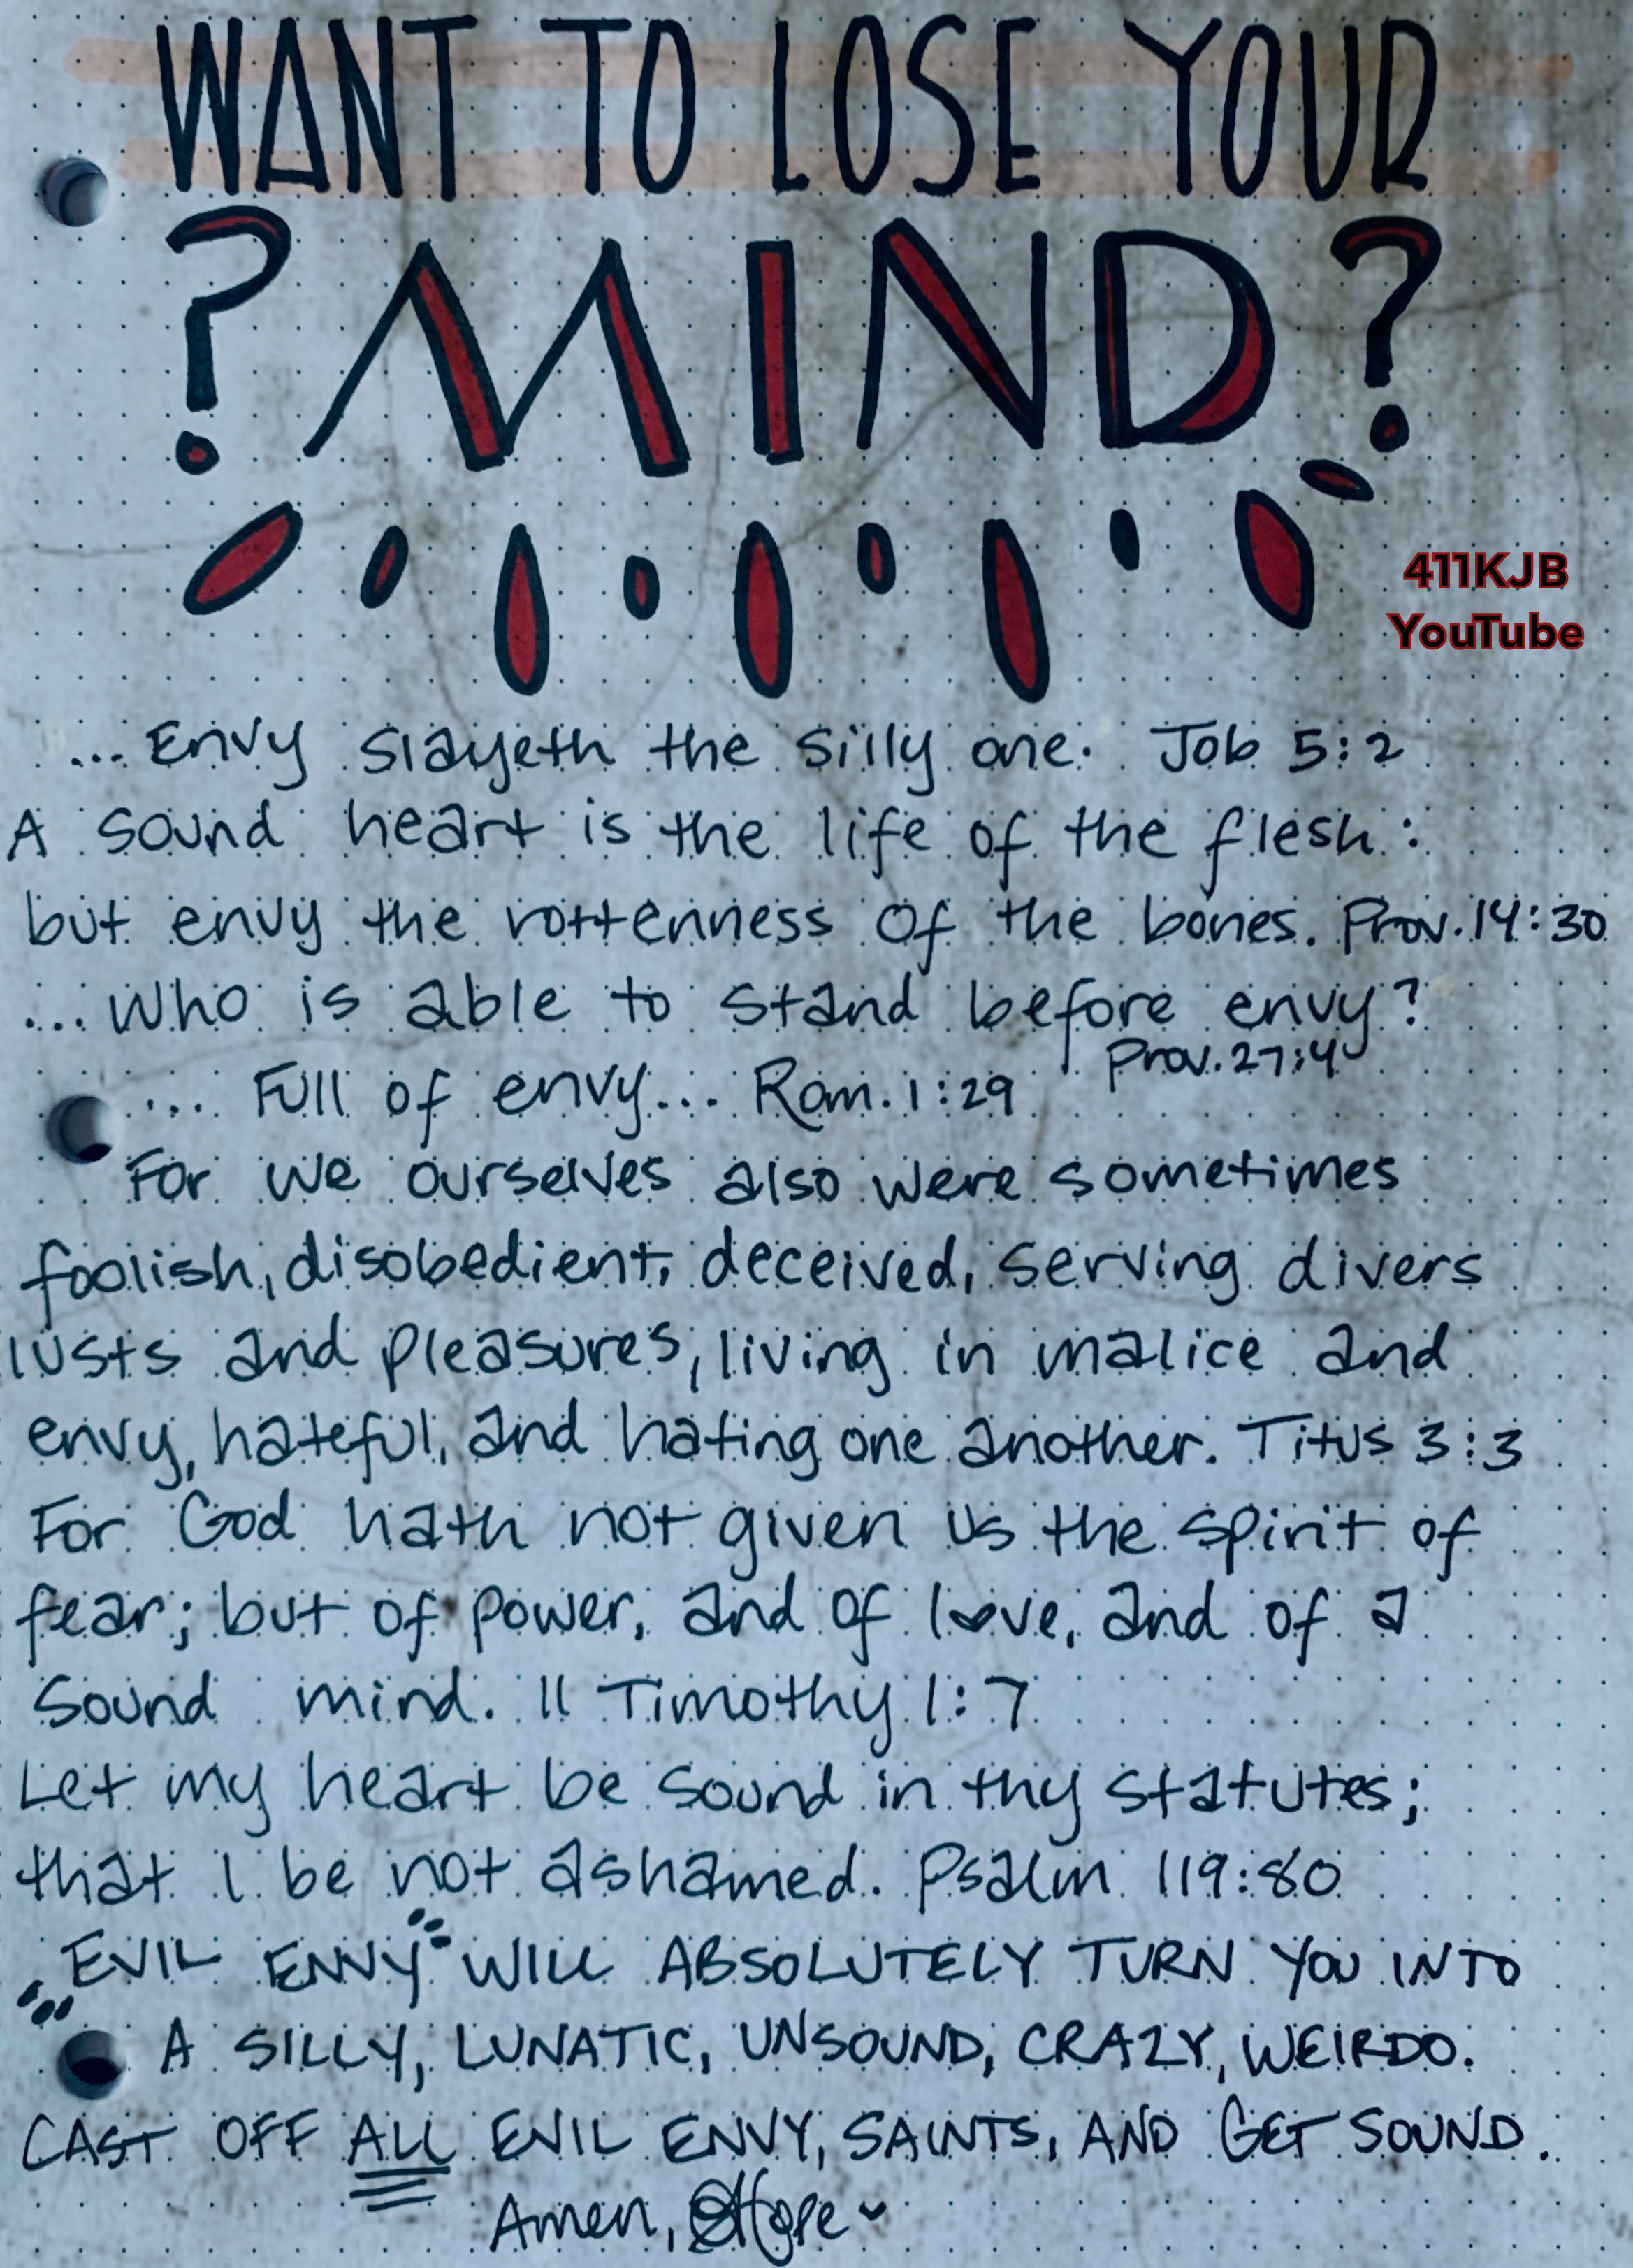 WANT TO LOSE YOUR
? MIND?
411KJB
YouTube
... Envy slayeth the silly one. Job 5:2
A sound heart is the life of the flesh:
but envy the rottenness of the bones. Prov. 14:30
...Who is able to stand before envy?
Prov. 27:4
... Full of envy... Rom. 1:29
For we ourselves also were sometimes
foolish, disobedient, deceived, serving divers
lusts and pleasures, living in malice and
envy, hateful, and hating one another. Titus 3:3
For God hath not given us the spirit of
fear; but of power, and of love, and of a
sound mind. II Timothy 1:7
Let my heart be sound in thy statutes;
that I be not ashamed. Psalm 119:80
EVIL ENVY WILL ABSOLUTELY TURN YOU INTO
A SILLY, LUNATIC, UNSOUND, CRAZY, WEIRDO.
CAST OFF ALL EVIL ENVY, SAINTS, AND GET SOUND.
Amen, Hope